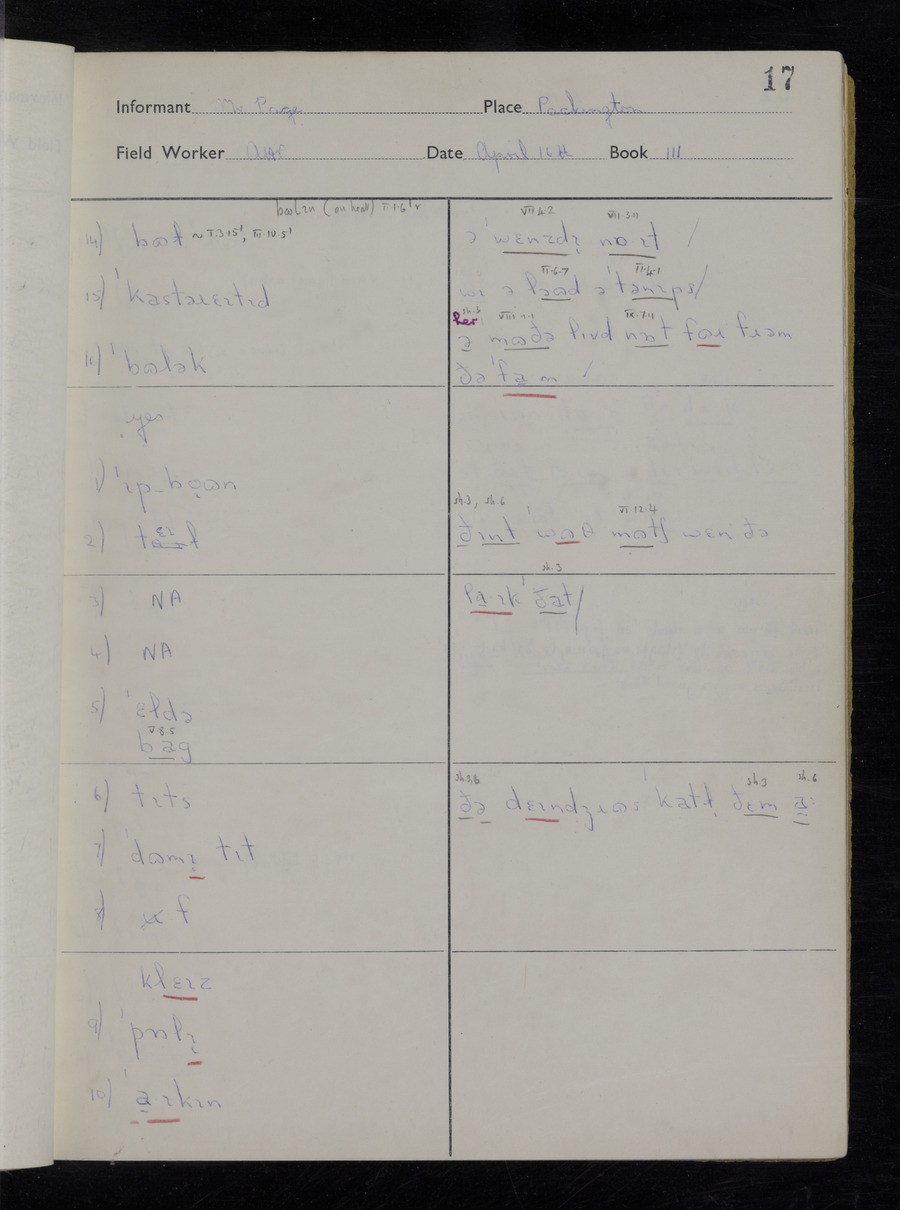 17
Informant Mr Page Place Packington
Field Worker Date April 16th Book III
(on head) II.1.6
14) ~ I.3.15¹, III.10.5¹
15) ˈkastəɹɛɪtɪd
16) ˈbɷlək
yes
1) ˈɪp-bɷən
2)
3) NA
4) NA
5) ˈɛldə
V.8.5
bag
6) tɪts
7) ˈdɷmɪ tɪt
8)
klɛɪz
9) ˈpɒlɪ
10) ˈaɪkɪn
VII.4.2 VII.3.11
əˈwɛnzdɪ nɒɪt /
II.6.7 II.4.1
wɪ ə lɷəd ə ˈtənɪps/
sh.3 VIII.1.1 IX.7.11
her
ə mɷðə lɪvd nɒt faɪ fɹəm
ðə ˈfam /
sh.3, sh.6 VI.12.4
ðɪnt ˈwɷθ mɷtʃ wɛn ðə
sh.3
laɪk ˈðat/
sh.3,6 sh.3 sh.6
ðə dɛɪndʒɹəs ˈkatl ðɛm a: